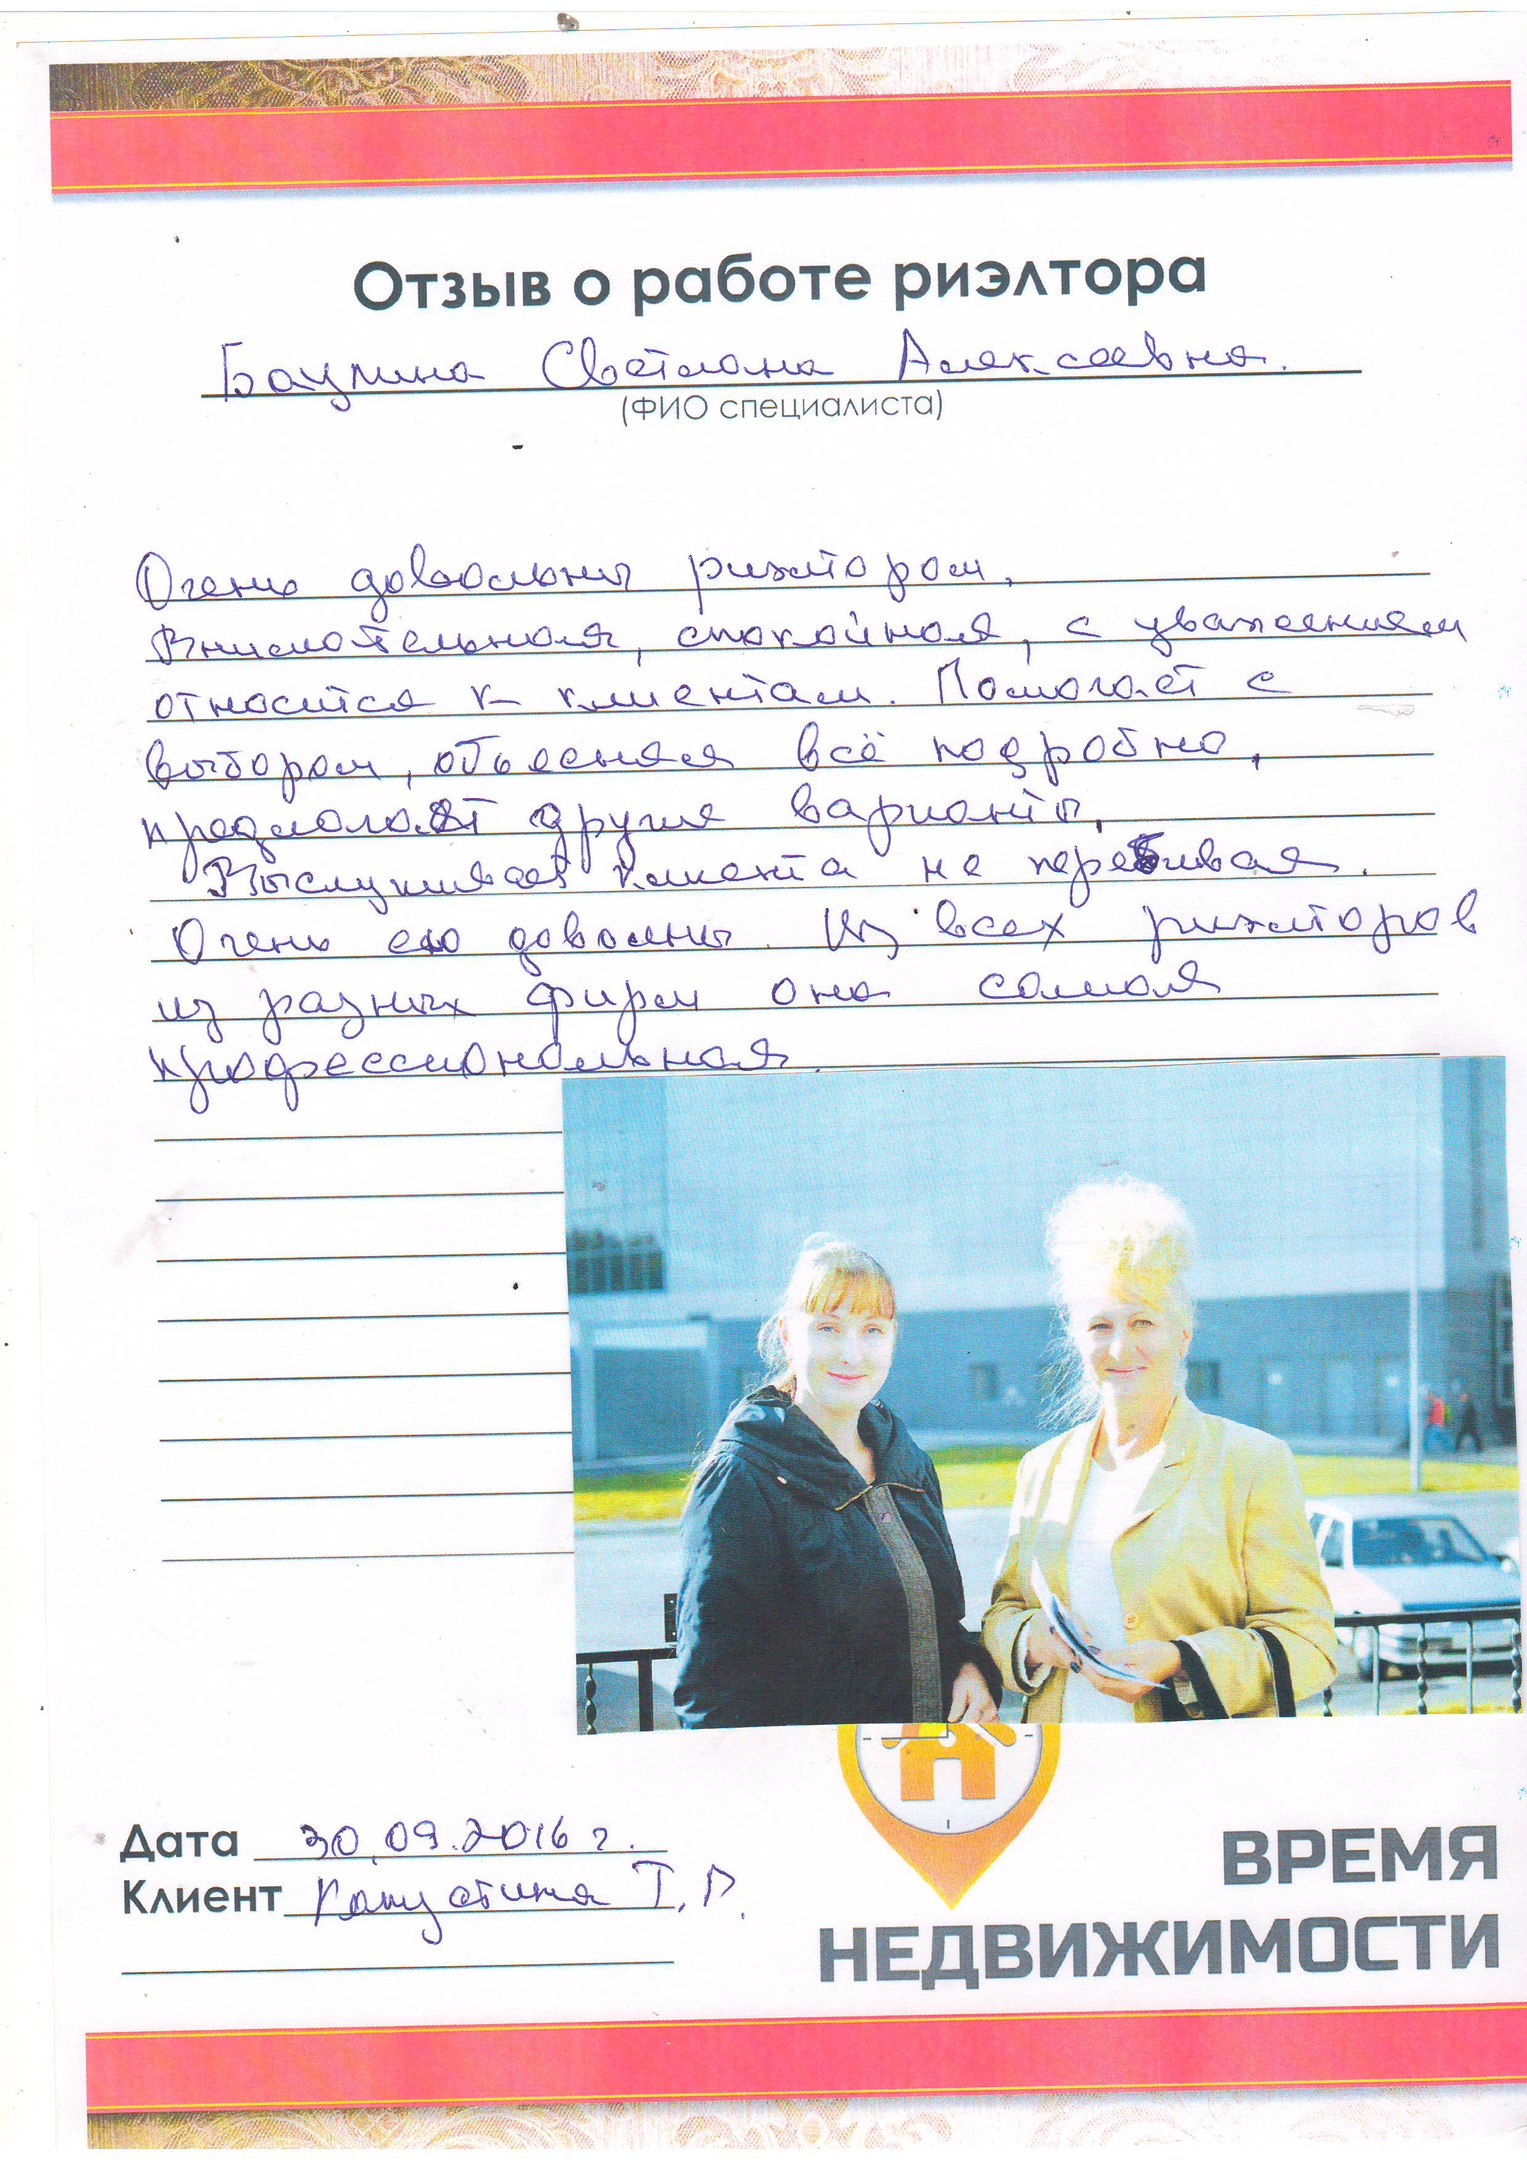 Отзыв о работе риэлтора
Баумина Светлана Алексеевна.
(ФИО специалиста)
Очень довольны риэлтором,
Внимательная, спокойная, с уважением
относится к клиентам. Помогает с
выбором, объесняя всё подробно,
предлогает другие варианты.
Выслушивает клиента не перебивая.
Очень ею довольны. Из всех риэлторов
из разных фирм она самая
профессиональная.
Дата 30.09.2016 г.
Клиент Капустина Т. Г.
ВРЕМЯ
НЕДВИЖИМОСТИ